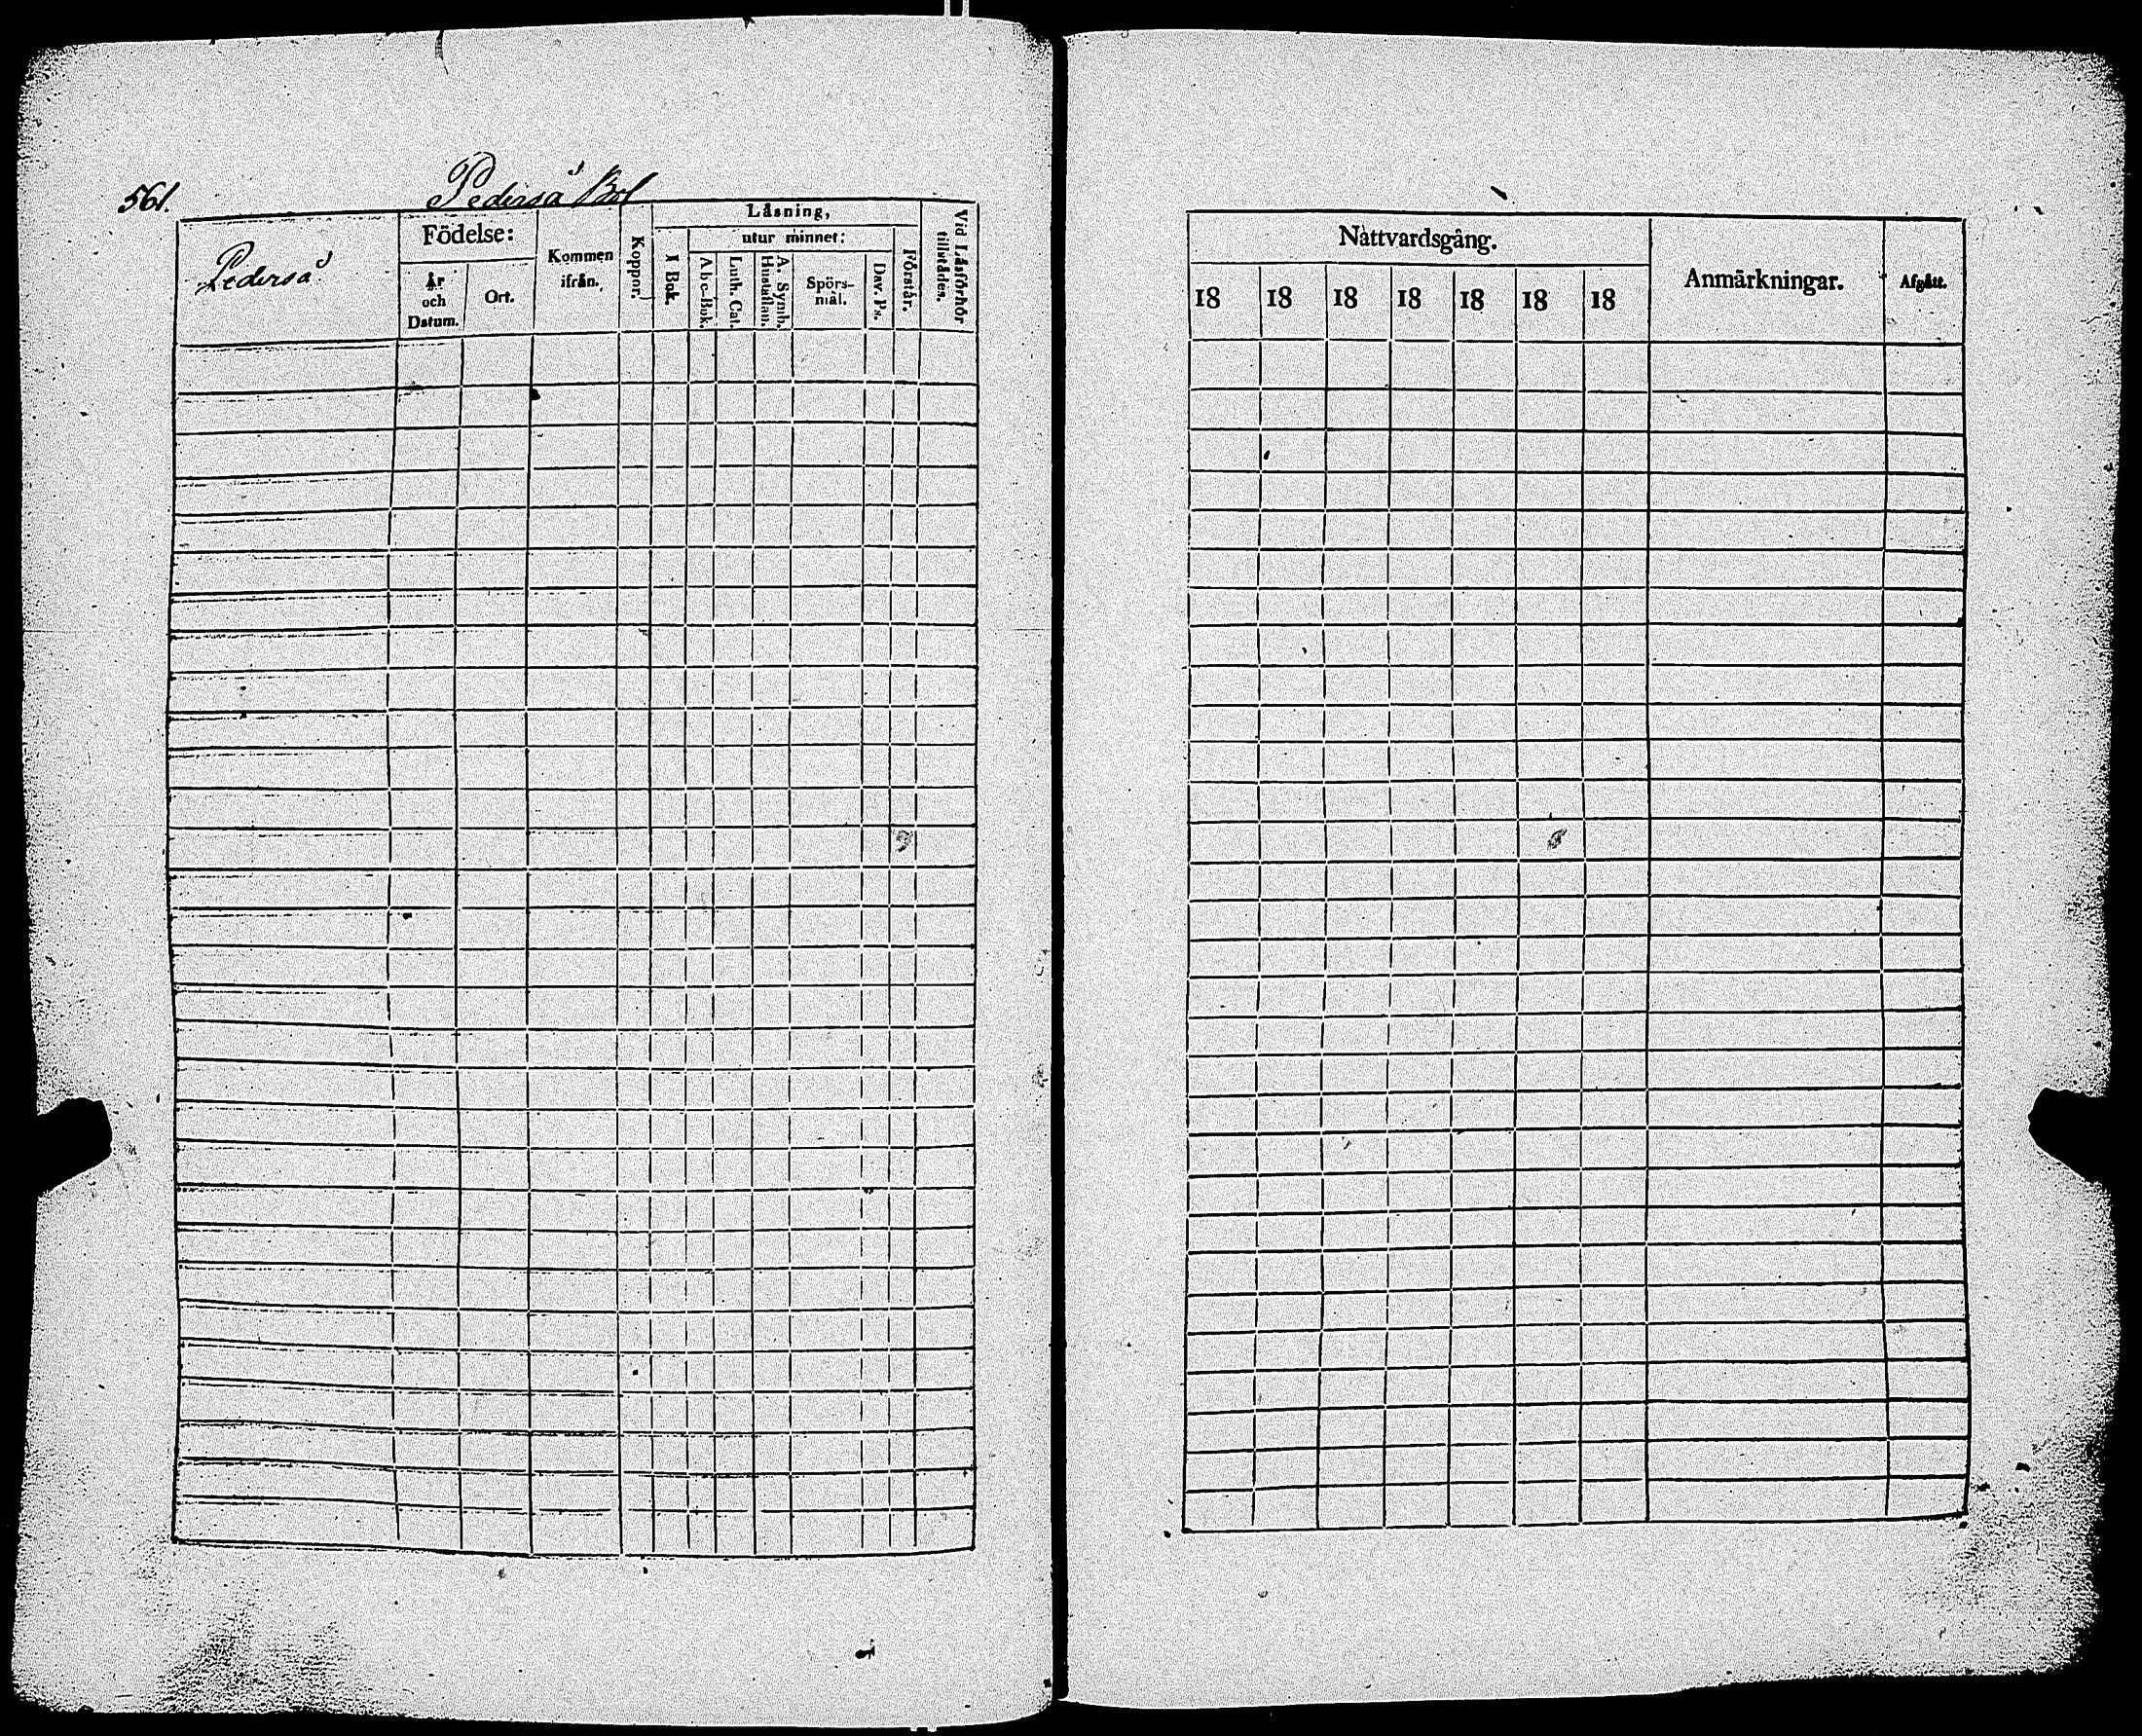 561.
Pederså Bol
Pederså
Födelse:
År och Datum.
Ort.
Kommen ifrån.
Koppor.
Låsning,
I Bok.
utur minnet:
A b c-Bok.
Luth. Cat.
A. Symb. Hustaflan.
Spörs-mål.
Dav. Ps.
Förstår.
Vid Låsförhör tillstådes.
Nattvardsgång.
18 18 18 18 18 18 18
Anmärkningar.
Afgått.